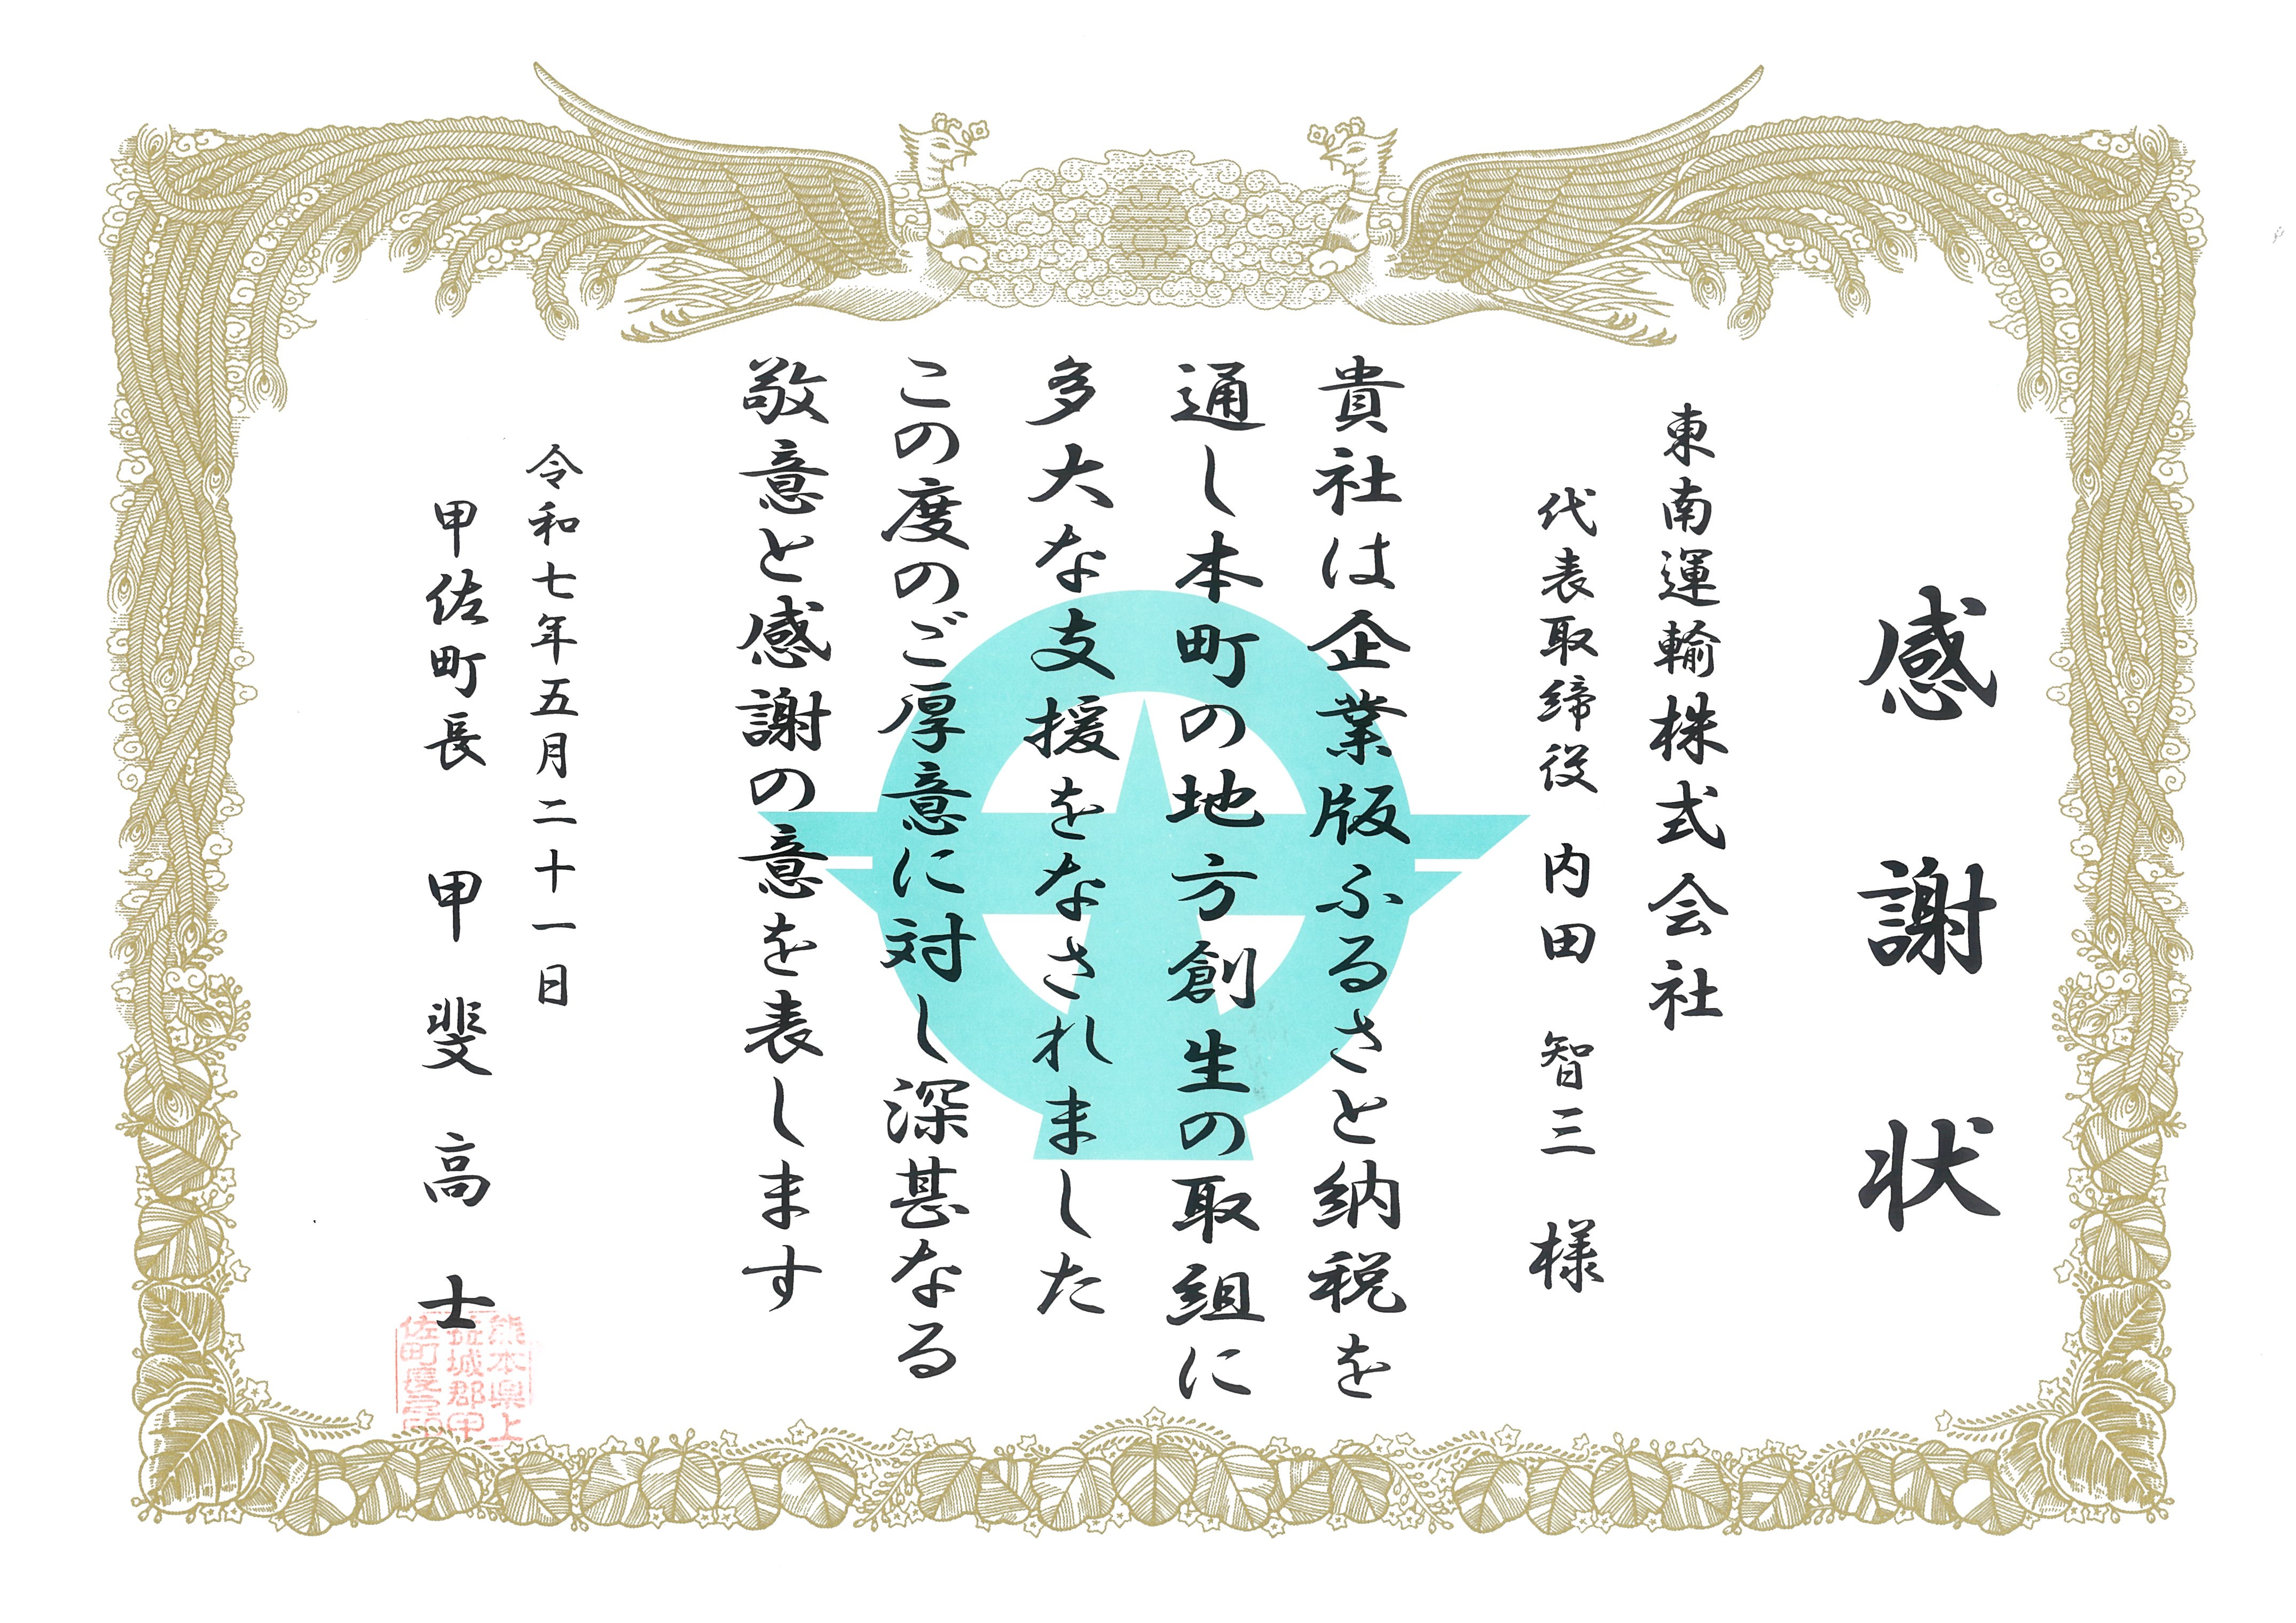 感謝状
東南運輸株式会社
代表取締役 内田 智三 様
貴社は企業版ふるさと納税を
通し本町の地方創生の取組に
多大な支援をなされました
この度のご厚意に対し深甚なる
敬意と感謝の意を表します
令和七年五月二十一日
甲佐町長 甲斐高士
熊本県上
益城郡甲
佐町長之印